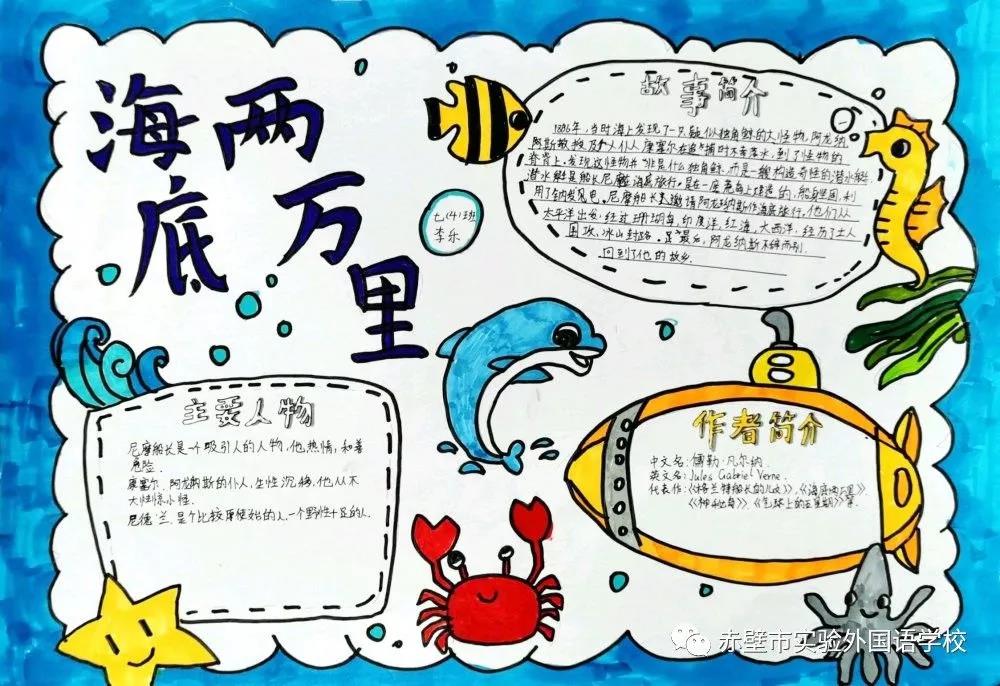 海底两万里
七(4)班
李乐
故事简介
当时海上发现了一只 独角鲸的大怪物,阿龙纳
斯教授及 仆人 康塞尔在追捕时不幸落水,到了怪物的
脊背上。发现这怪物并非是什么独角鲸,而是一艘构造奇怪的潜水艇
潜水艇是船长尼摩 海底旅行。是在一座荒岛上建造的,船身坚固,利
用了 发电。尼摩船长邀请阿龙纳斯作海底旅行,他们从
太平洋出发,经过珊瑚岛、印度洋、红海、大西洋,经历了土人
围攻、冰山封路。 最后,阿龙纳斯不辞而别,
回到了他的故乡。
主要人物
尼摩船长是个吸引人的人物,他,热情,和善
危险。
康塞尔、阿龙纳斯的仆人,生性沉稳,他从不
大惊小怪。
尼德·兰,是个比较原始的人,一个野性十足的人。
作者简介
中文名:儒勒·凡尔纳。
英文名:Jules Gabriel Verne.
代表作:《格兰特船长的儿女》,《海底两万里》,
《神秘岛》、《气球上的五星期》等。
赤壁市实验外国语学校